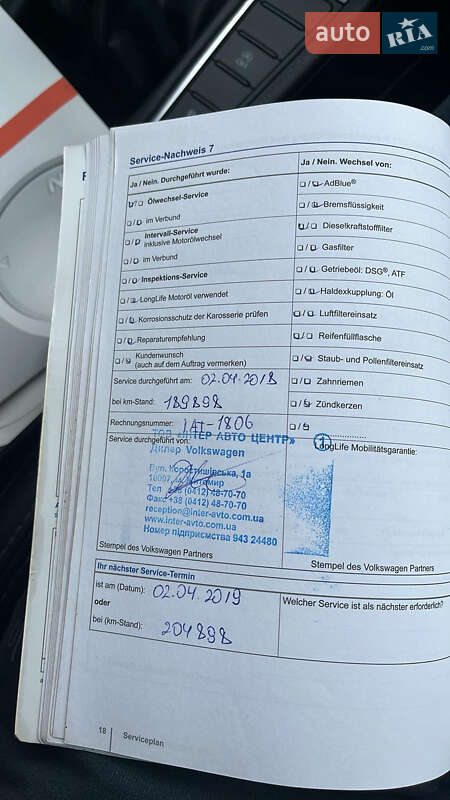 auto RIA.com
Service-Nachweis 7
Ja / Nein. Durchgeführt wurde:
Ölwechsel-Service
im Verbund
Intervall-Service
inklusive Motorölwechsel
im Verbund
Inspektions-Service
LongLife Motoröl verwendet
Korrosionsschutz der Karosserie prüfen
Reparaturempfehlung
Kundenwunsch
(auch auf dem Auftrag vermerken)
Service durchgeführt am: 02.04.2018
bei km-Stand: 189898
Rechnungsnummer: IAT-1806
Service durchgeführt von:
ТОВ «ІНТЕР АВТО ЦЕНТР»
Дилер Volkswagen
Вул. Коростишівська, 1а
10007, м.Житомир
Тел +38 (0412) 48-70-70
Факс +38 (0412) 48-70-70
reception@inter-avto.com.ua
www.inter-avto.com.ua
Номер підприємства 943 24480
Stempel des Volkswagen Partners
Ja / Nein. Wechsel von:
AdBlue®
Bremsflüssigkeit
Dieselkraftstofffilter
Gasfilter
Getriebeöl: DSG®, ATF
Haldexkupplung: Öl
Luftfiltereinsatz
Reifenfüllflasche
Staub- und Pollenfiltereinsatz
Zahnriemen
Zündkerzen
LongLife Mobilitätsgarantie:
1
Stempel des Volkswagen Partners
Ihr nächster Service-Termin
ist am (Datum): 02.04.2019
oder
bei (km-Stand): 204898
Welcher Service ist als nächster erforderlich?
18 Serviceplan